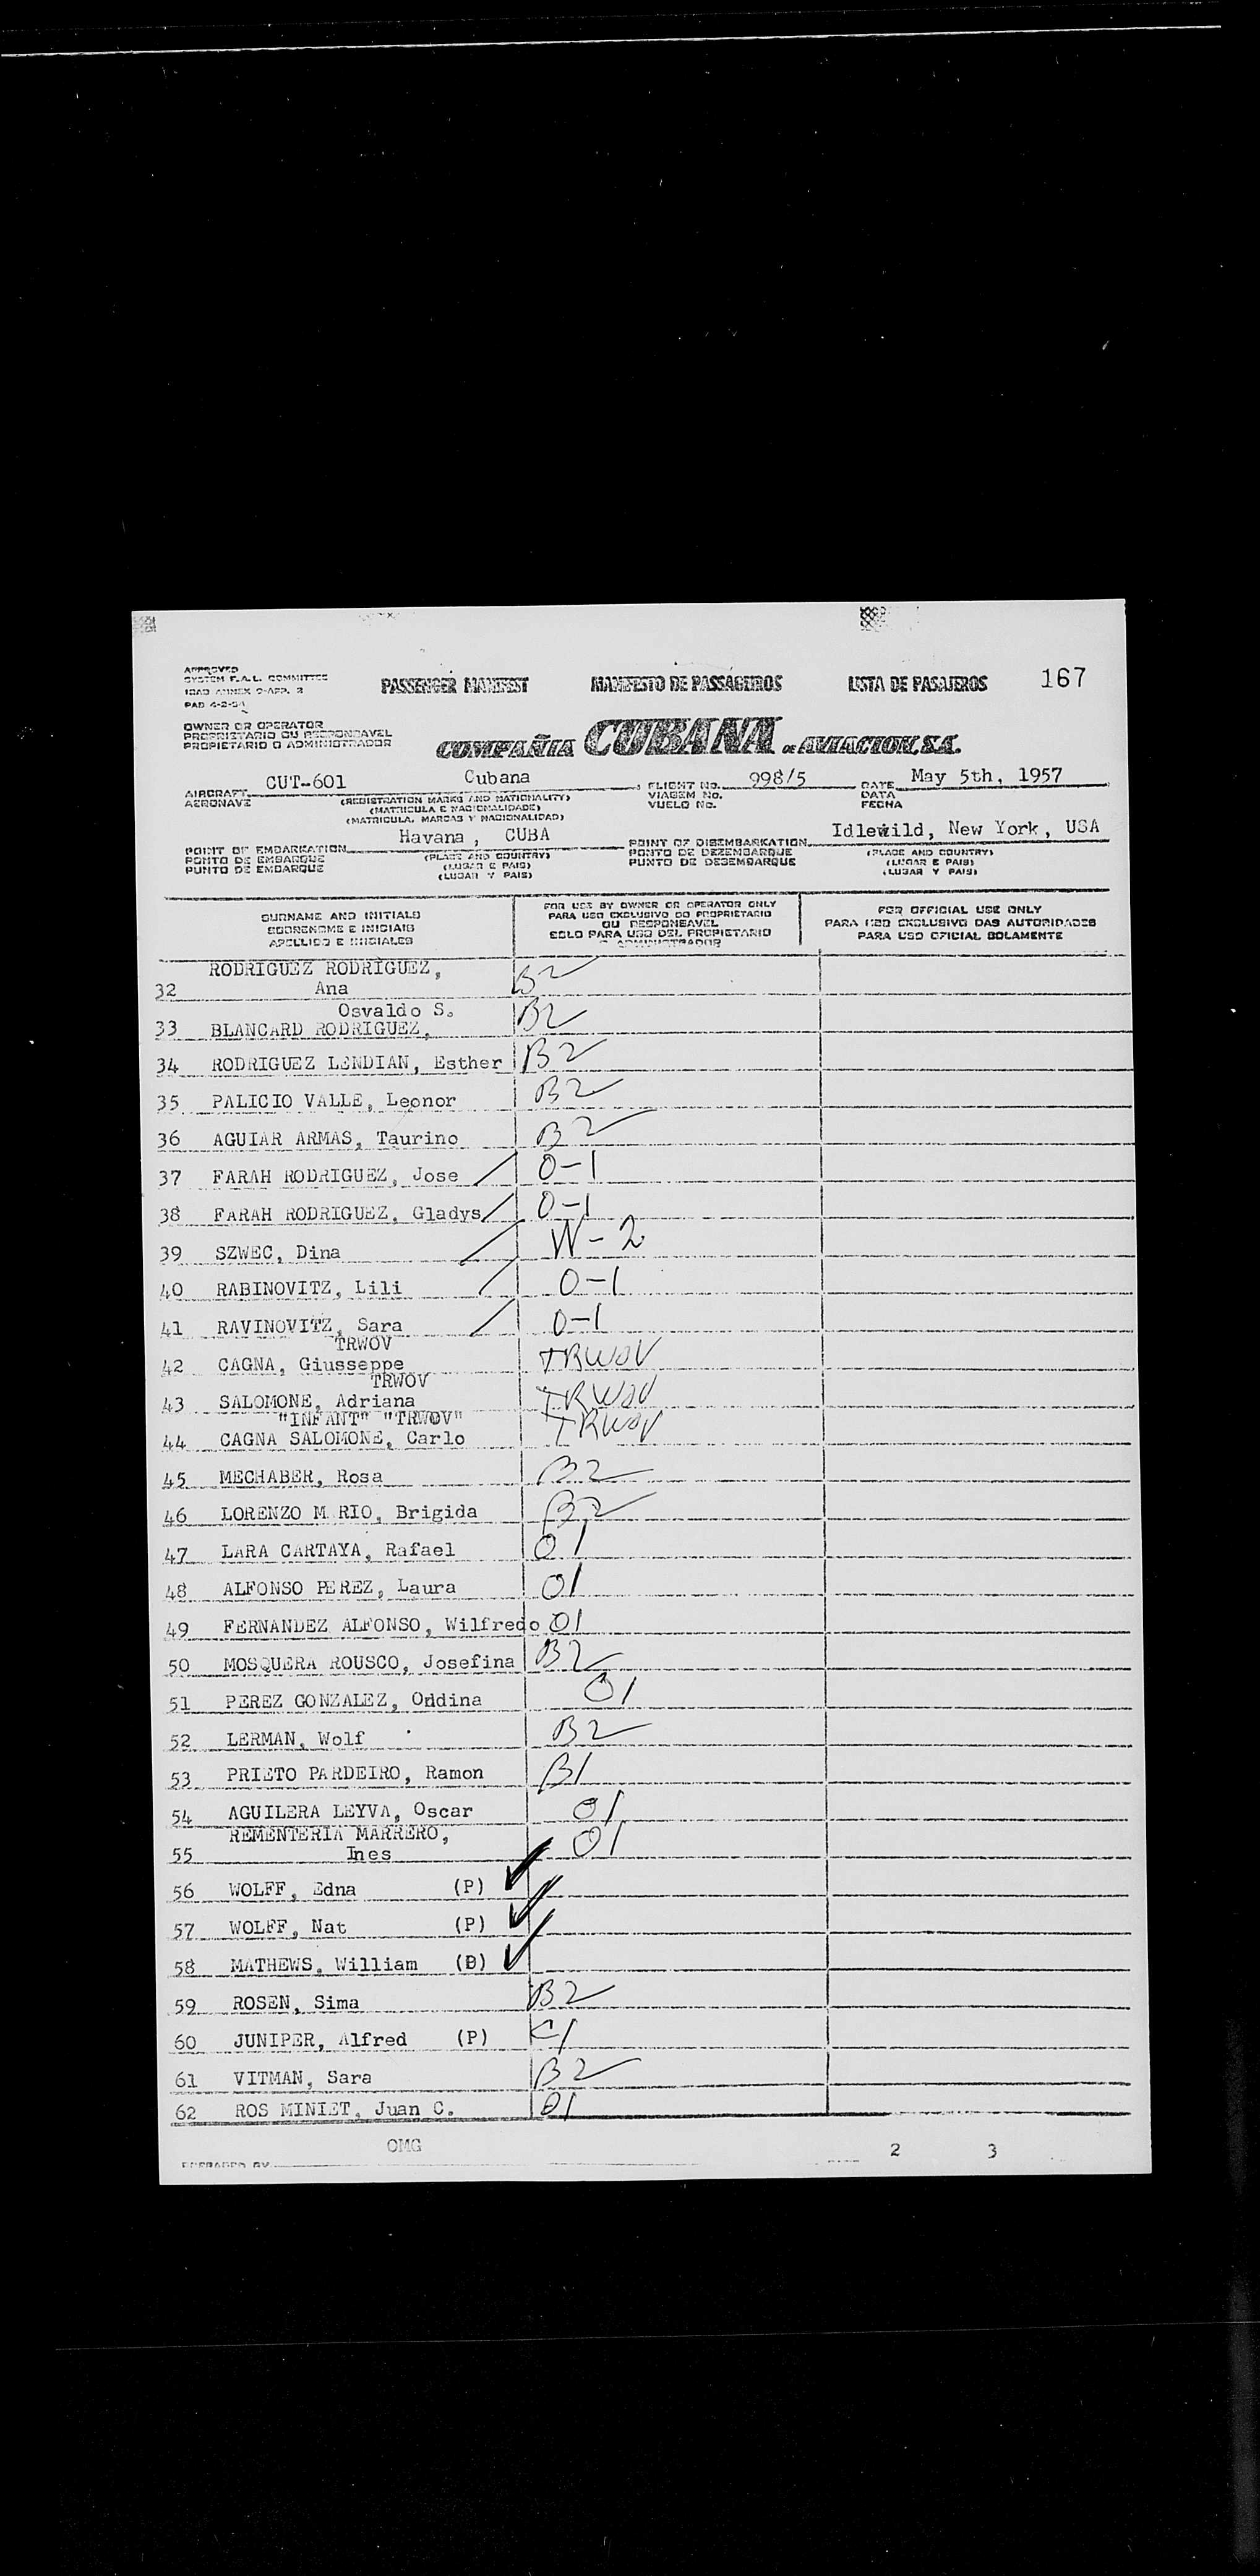 APPROVED
SYSTEM F.A.L. COMMITTEE
ICAO ANNEX 9-APP. 3
PAD 4-2-51
PASSENGER MANIFEST MANIFESTO DE PASSAGEIROS LISTA DE PASAJEROS 167
OWNER OR OPERATOR
PROPRIETARIO OU RESPONSAVEL
PROPIETARIO O ADMINISTRADOR
COMPAÑIA CUBANA DE AVIACION, S.A.
AIRCRAFT CUT-601 Cubana FLIGHT NO. 998/5 DATE May 5th, 1957
AERONAVE (REGISTRATION MARKS AND NATIONALITY) VIAGEM NO. DATA
(MATRICULA E NACIONALIDADE) VUELO NO. FECHA
(MATRICULA, MARCAS Y NACIONALIDAD)
POINT OF EMBARKATION Havana, CUBA POINT OF DISEMBARKATION Idlewild, New York, USA
PONTO DE EMBARQUE (PLACE AND COUNTRY) PONTO DE DEZEMBARQUE (PLACE AND COUNTRY)
PUNTO DE EMBARQUE (LUGAR E PAIS) PUNTO DE DESEMBARQUE (LUGAR E PAIS)
(LUGAR Y PAIS) (LUGAR Y PAIS)
SURNAME AND INITIALS
SOBRENOME E INICIAIS
APELLIDO E INICIALES
FOR USE BY OWNER OR OPERATOR ONLY
PARA USO EXCLUSIVO DO PROPRIETARIO
OU RESPONSAVEL
SOLO PARA USO DEL PROPIETARIO
O ADMINISTRADOR
FOR OFFICIAL USE ONLY
PARA USO EXCLUSIVO DAS AUTORIDADES
PARA USO OFICIAL SOLAMENTE
RODRIGUEZ RODRIGUEZ,
32 Ana B2
Osvaldo S.
33 BLANCARD RODRIGUEZ, B2
34 RODRIGUEZ LENDIAN, Esther B2
35 PALICIO VALLE, Leonor B2
36 AGUIAR ARMAS, Taurino B2
37 FARAH RODRIGUEZ, Jose O-1
38 FARAH RODRIGUEZ, Gladys O-1
39 SZWEC, Dina W-2
40 RABINOVITZ, Lili O-1
41 RAVINOVITZ, Sara O-1
TRWOV
42 CAGNA, Giusseppe TRWOV
TRWOV
43 SALOMONE, Adriana TRWOV
"INFANT" "TRWOV"
44 CAGNA SALOMONE, Carlo TRWOV
45 MECHABER, Rosa B2
46 LORENZO M RIO, Brigida B2
47 LARA CARTAYA, Rafael O1
48 ALFONSO PEREZ, Laura O1
49 FERNANDEZ ALFONSO, Wilfredo O1
50 MOSQUERA ROUSCO, Josefina B2
51 PEREZ GONZALEZ, Oddina O1
52 LERMAN, Wolf B2
53 PRIETO PARDEIRO, Ramon B1
54 AGUILERA LEYVA, Oscar O1
REMENTERIA MARRERO,
55 Ines O1
56 WOLFF, Edna (P)
57 WOLFF, Nat (P)
58 MATHEWS, William (B)
59 ROSEN, Sima B2
60 JUNIPER, Alfred (P) C1
61 VITMAN, Sara B2
62 ROS MINIET, Juan C. O1
PREPARED BY OMG 2 3